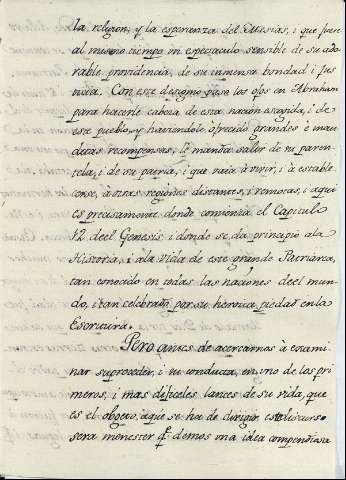 la religion, y la esperanza del Mesias, i que fuese
al mismo tiempo un espectaculo sensible de su ado-
rable providencia, de su inmensa bondad i jus-
ticia. Con este designio puso los ojos en Abrahan
para hacerle cabeza de esta nacion escogida, i de
este pueblo, y haviendole ofrecido grandes e inau-
ditas recompensas, le manda salir de su paren-
tela, i de su patria, i que vaia à vivir, i à estable-
cerse, à otras regiones distantes, i remotas, i aqui
es precisamente donde comienza el Capitulo
12 deel Genesis i donde se da principio ala
Historia, i ala vida de este grande Patriarca,
tan conocido en todas las naciones deel mun-
do, i tan celebrado por su heroica piedad en la
Escritura.
Pero antes de acercarnos à exami-
nar su proceder, i su conducta, en uno de los pri-
meros, i mas dificeles lances de su vida, que
es el obgeto, aque se ha de dirigir este discurso
sera menester q.e demos una idea compendiosa